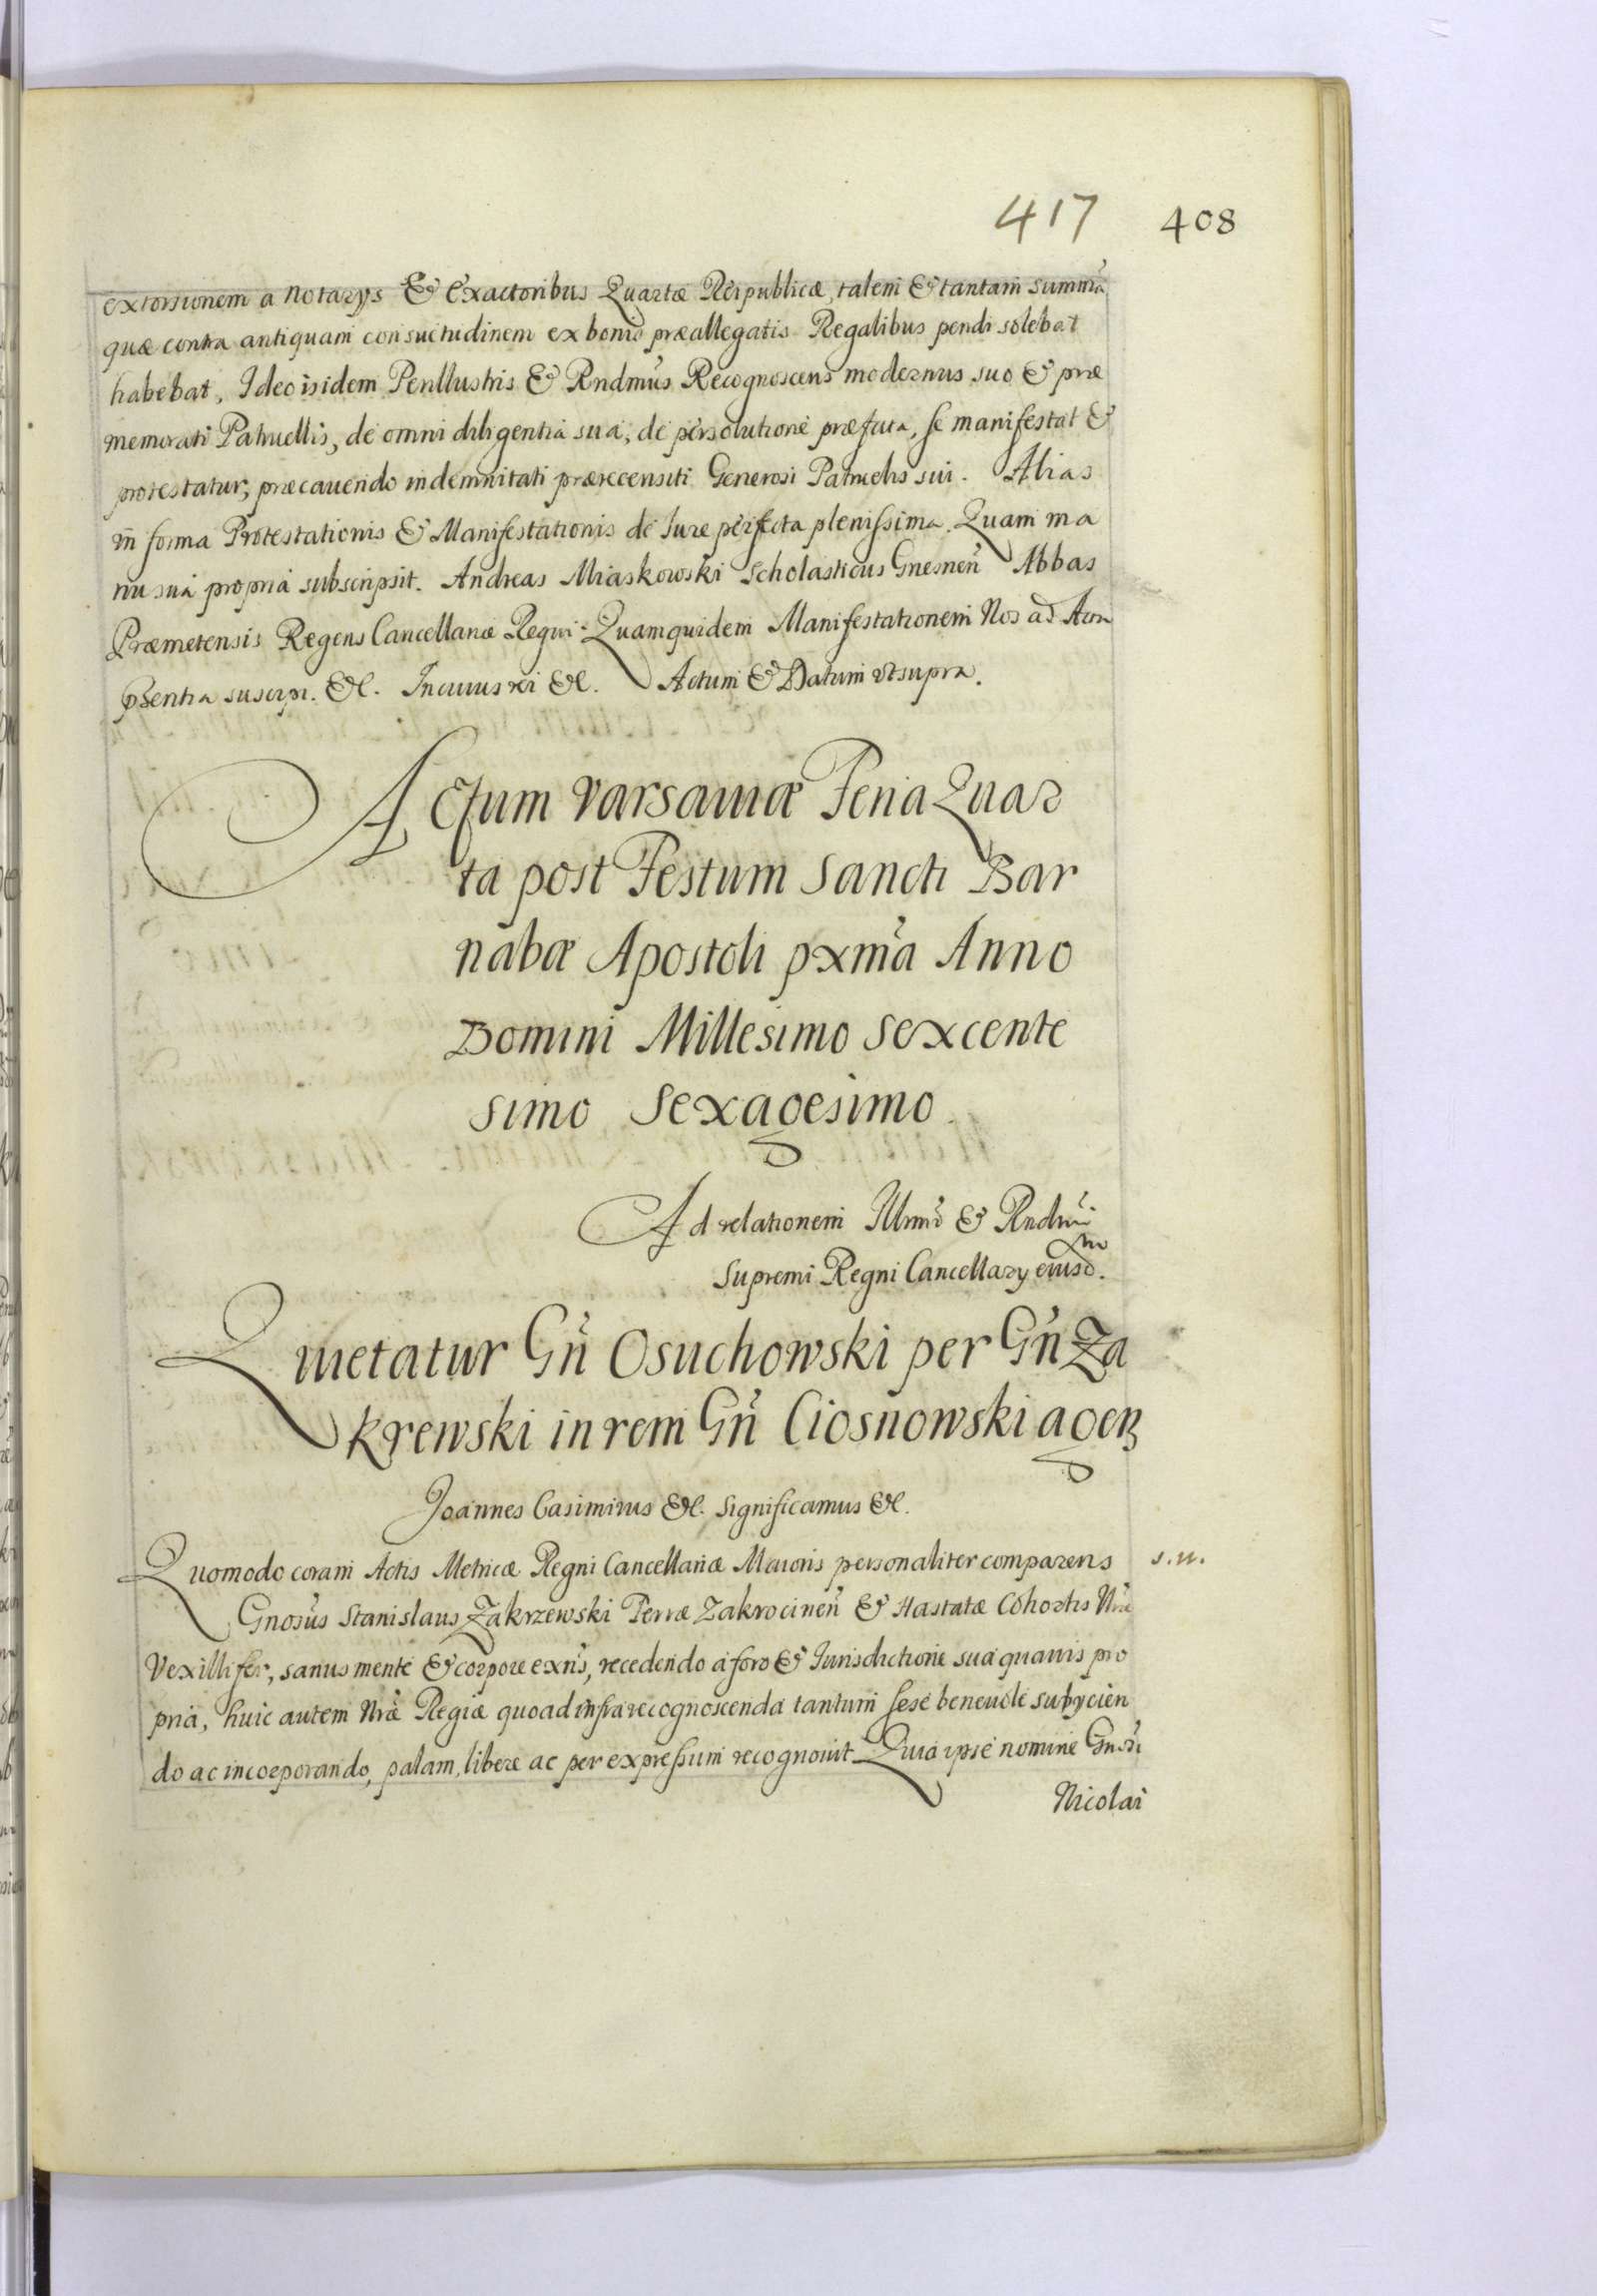 417 408
extorsionem a notarys & exactoribus Quartæ Reipublicæ, talem & tantam summã
quæ contra antiquam consuetudinem ex bonis præallegatis Regalibus pendi solebat
habebat, Ideo isidem Perillustris & Rndmus Recognoscens modernus suo & præ
memorati Patruellis, de omni diligentia sua, de persolutione præfata, se manifestat &
protestatur, præcavendo indemnitati præsecensiti Generosi Patruelis sui. Alias
in forma Protestationis & Manifestationis de Jure perfecta plenissima. Quam ma
nu sua propria subscripsit. Andreas Miaskowski Scholasticus Gnesnen Abbas
Præmetensis Regens Cancellariæ Regni. Quamquidem Manifestationem Nos ad Acta
pñsentia suscepi. &c. In cuius rei &c. Actum & Datum vt supra.
Actum Varsaviæ Feria Quar
ta post Festum Sancti Bar
nabæ Apostoli pxma Anno
Domini Millesimo Sexcente
simo Sexagesimo.
Ad relationem Illmi & Rndmi
Supremi Regni Cancellary eiusd.
Quietatur Gñ Osuchowski per Gñ Za
krewski in rem Gñ Ciosnowski agen
Joannes Casimirus &c. Significamus &c.
Quomodo coram Actis Metricæ Regni Cancellariæ Maioris personaliter comparens s.n.
Gnosus Stanislaus Zakrzewski Terræ Zakrocinen & Hastatæ Cohortis Nræ
Vexillifer, sanus mente & corpore exns, recedendo a foro & Jurisdictione sua quavis pro
pria, huic autem Nræ Regiæ quoad infrarecognoscenda tantum sese benevole subycien
do ac incorporando, palam, libere ac per expressum recognovit. Quia ipse nomine Gnosi
Nicolai